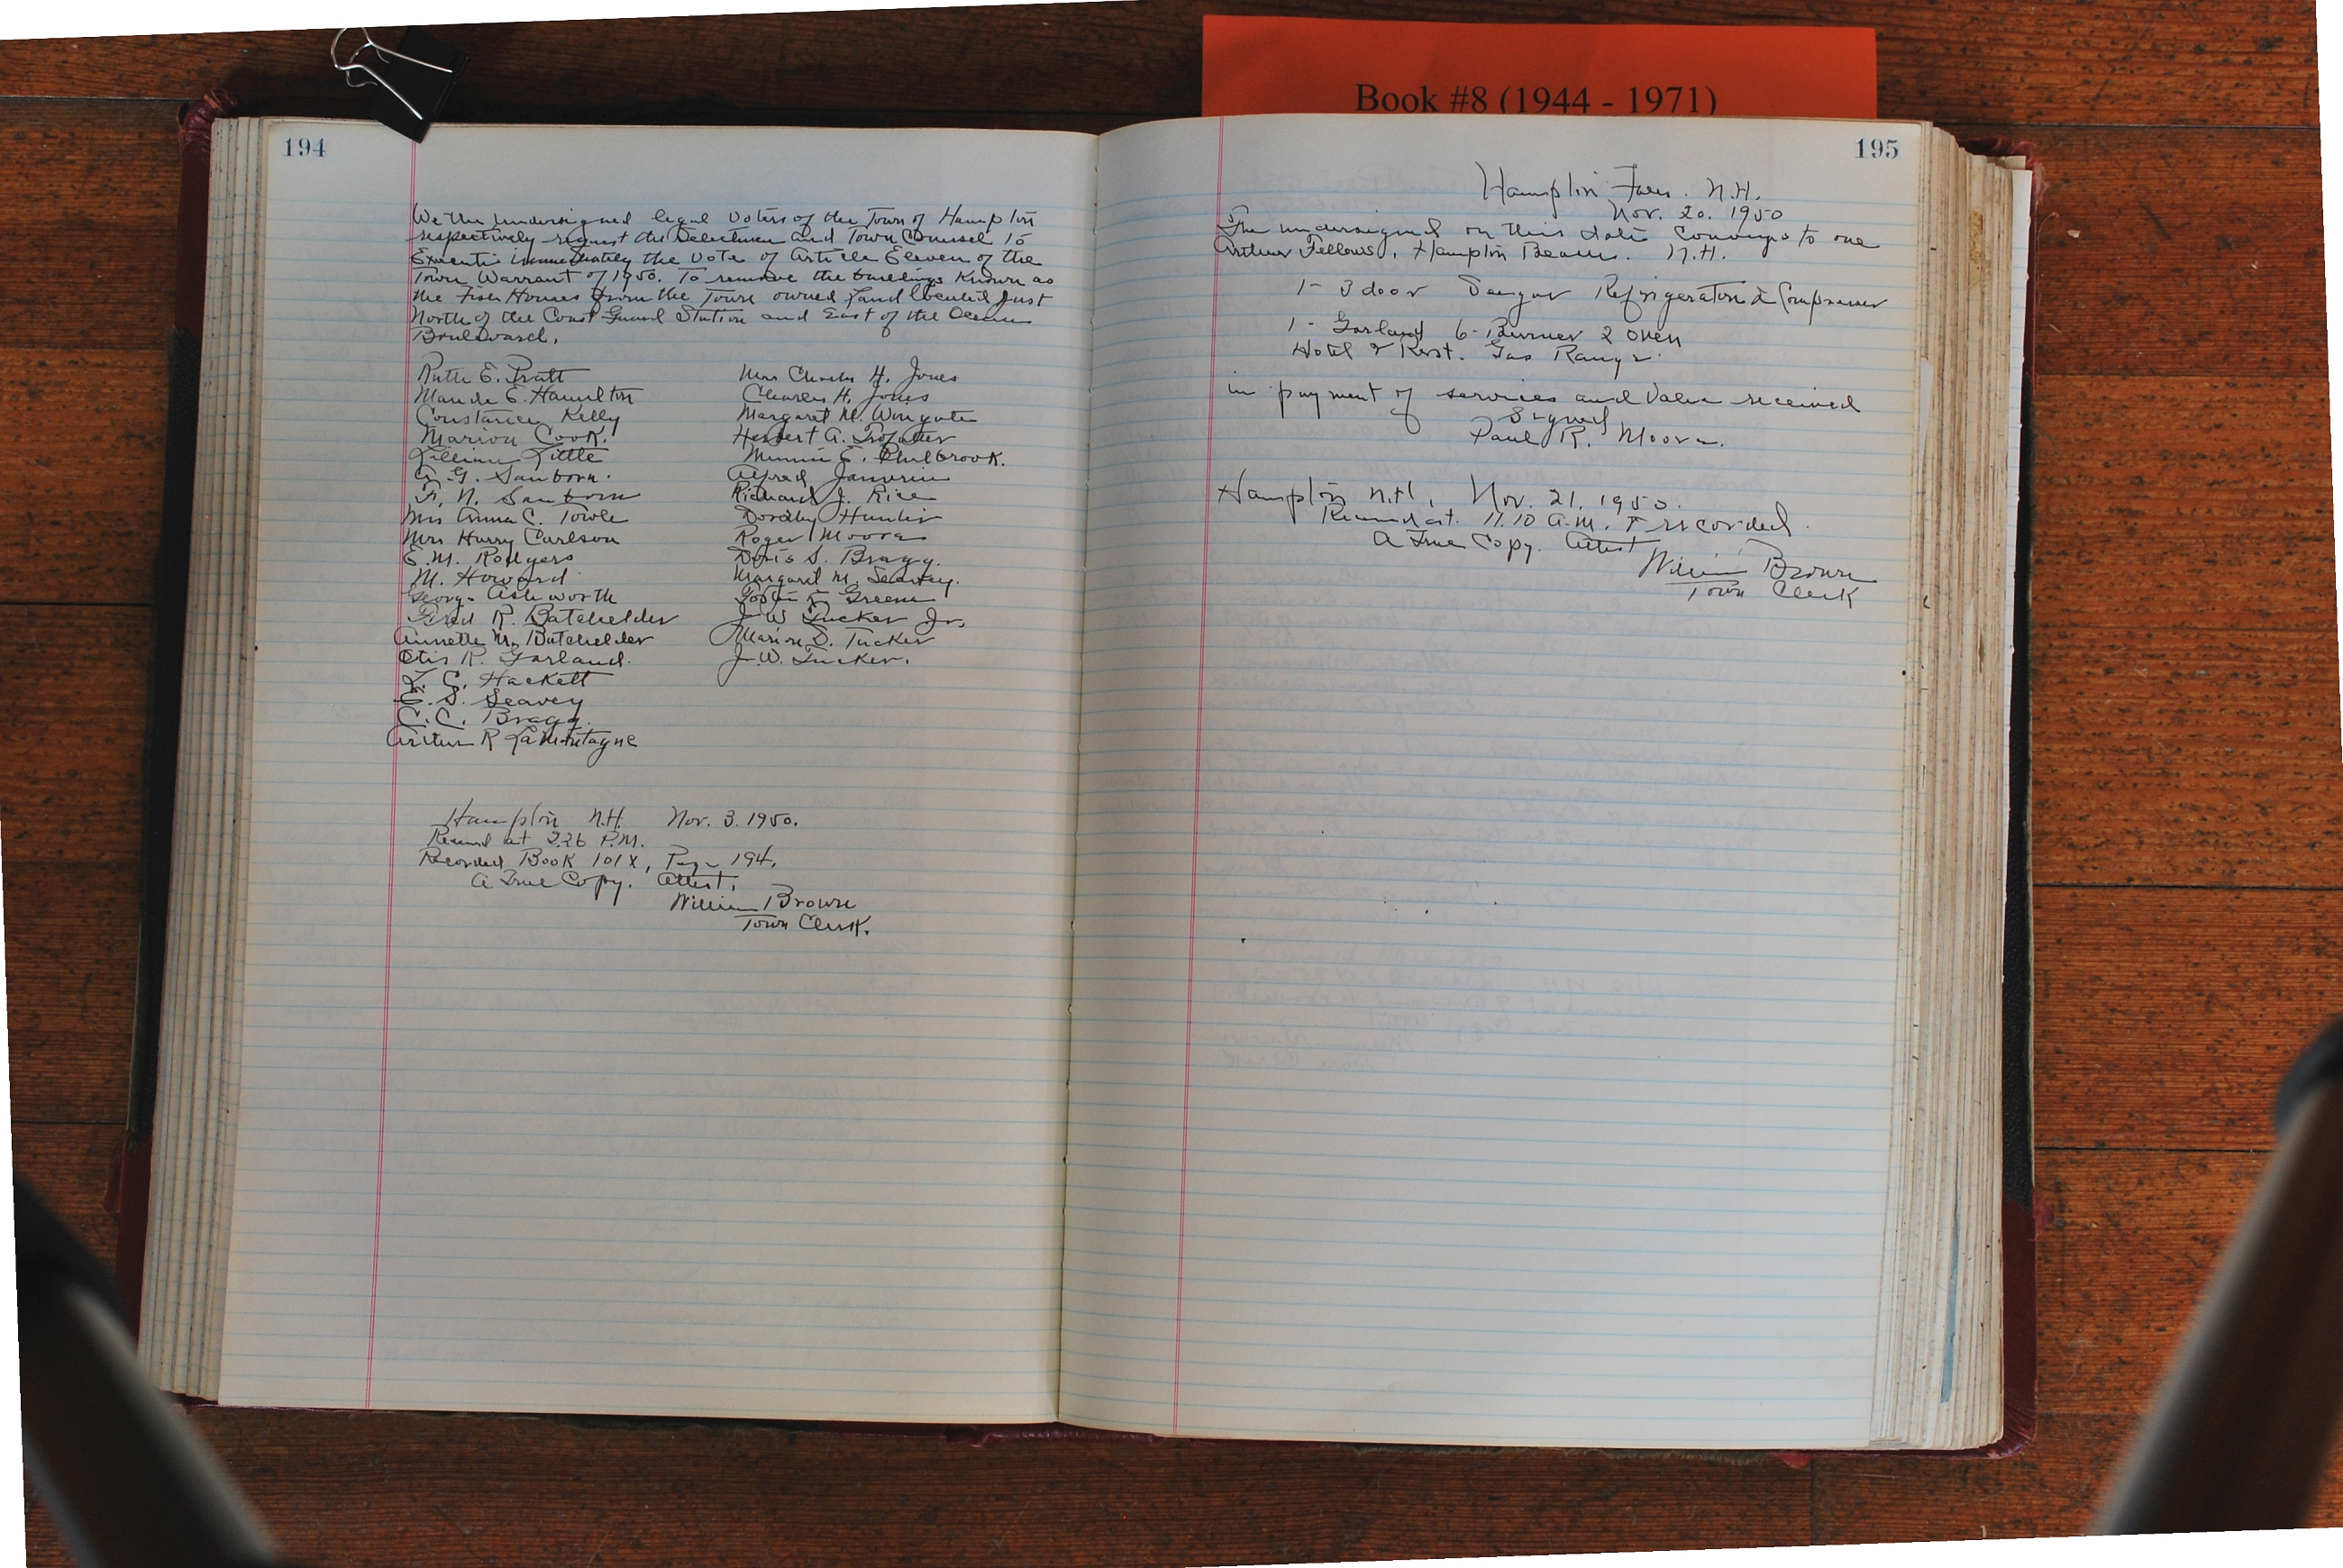 Book #8 (1944 - 1971)
194
We the undersigned legal voters of the Town of Hampton
respectively request the Selectmen and Town Counsel to
Execute immediately the vote of Article Eleven of the
Town Warrant of 1950. To remove the buildings Known as
the Fish Houses from the Town owned Land located Just
North of the Coast Guard Station and East of the Ocean
Boulevard.
Ruth E. Pratt
Maude E. Hamilton
Constance Kelly
Marion Cook.
Lillian Little
A. G. Sanborn.
F. N. Sanborn
Mrs Anna C. Towle
Mrs Harry Carlson
E. M. Rodgers
M. Howard
George Ashworth
Fred R. Batchelder
Annette M. Batchelder
Otis R. Garland.
L. C. Hackett
E. S. Seavey
C. C. Bragg.
Arthur R LaMontagne
Mrs Charles H. Jones
Charles H. Jones
Margaret M. Wingate
Herbert A.
Minnie E. Philbrook.
Alfred Janvrin
Richard J. Rice
Dorothy Hunter
Roger Moore
Doris S. Bragg.
Margaret M. Seavey.
Greene
J W Tucker Jr.
Marion D. Tucker
J. W. Tucker.
Hampton N.H. Nov. 3. 1950.
Received at 2.26 P.M.
Recorded Book 101X, Page 194.
A True Copy. Attest.
William Brown
Town Clerk.
195
Hampton Falls. N.H.
Nov. 20. 1950
The undersigned on this date conveys to one
Arthur Fellows, Hampton Beach. N.H.
1- 3 door Seeger Refrigerator & Compressor
1- Garland 6-Burner 2 Oven
Hotel & Rest. Gas Range
in payment of services and value received
Signed
Paul R. Moore.
Hampton N.H. Nov. 21, 1950.
Received at 11.10 A.M. & recorded.
A True Copy. Attest
William Brown
Town Clerk